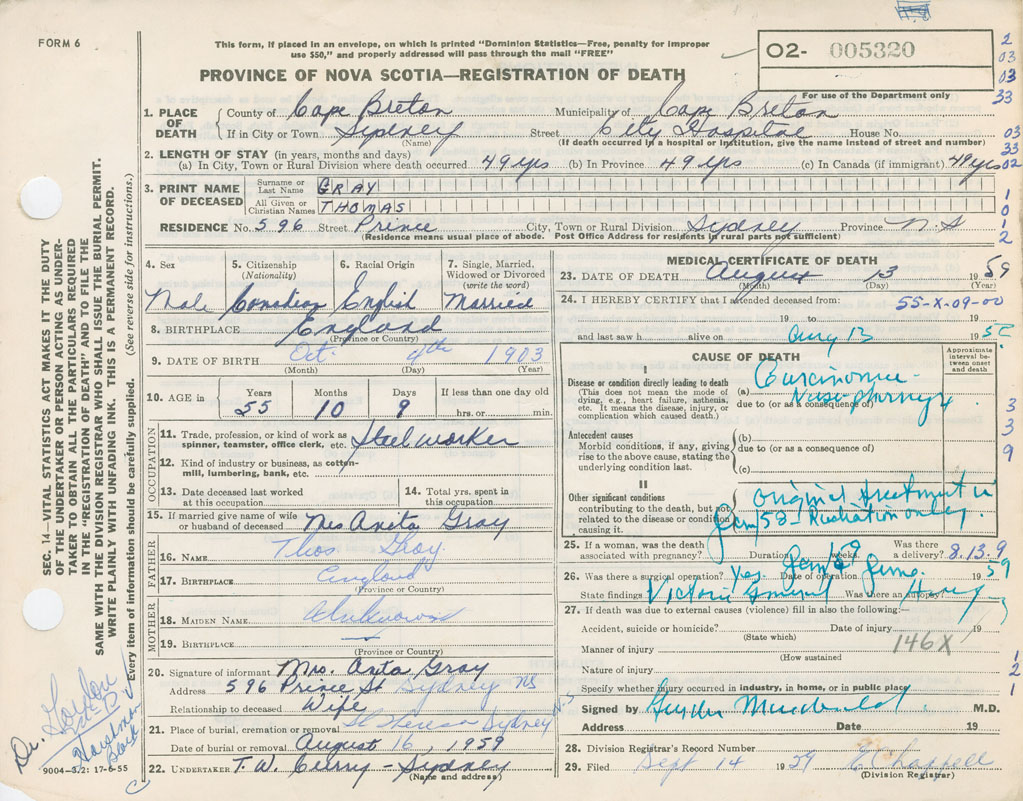 FORM 6
This form, if placed in an envelope, on which is printed "Dominion Statistics—Free, penalty for improper
use $50," and properly addressed will pass through the mail "FREE"
PROVINCE OF NOVA SCOTIA—REGISTRATION OF DEATH
O2- 005320
For use of the Department only
2
03
03
33
03
33
02
1
0
1
2
3
3
9
1
2
1
SEC. 14—VITAL STATISTICS ACT MAKES IT THE DUTY
OF THE UNDERTAKER OR PERSON ACTING AS UNDER-
TAKER TO OBTAIN ALL THE PARTICULARS REQUIRED
IN THE "REGISTRATION OF DEATH" AND TO FILE THE
SAME WITH THE DIVISION REGISTRAR WHO SHALL ISSUE THE BURIAL PERMIT.
WRITE PLAINLY WITH UNFADING INK. THIS IS A PERMANENT RECORD.
Every item of information should be carefully supplied. (See reverse side for instructions.)
1. PLACE OF DEATH County of Cape Breton Municipality of Cape Breton
If in City or Town Sydney Street City Hospital House No.
(Name) (If death occurred in a hospital or institution, give the name instead of street and number)
2. LENGTH OF STAY (in years, months and days)
(a) In City, Town or Rural Division where death occurred 49 yrs (b) In Province 49 yrs (c) In Canada (if immigrant) 49 yrs
3. PRINT NAME OF DECEASED Surname or Last Name GRAY
All Given or Christian Names THOMAS
RESIDENCE No. 596 Street Prince City, Town or Rural Division Sydney Province N.S
(Residence means usual place of abode. Post Office Address for residents in rural parts not sufficient)
4. Sex 5. Citizenship 6. Racial Origin 7. Single, Married,
(Nationality) Widowed or Divorced
(write the word)
Male Canadian English Married
8. BIRTHPLACE England
(Province or Country)
9. DATE OF BIRTH Oct. 4th 1903
(Month) (Day) (Year)
10. AGE in Years Months Days If less than one day old
55 10 9 hrs. or min.
OCCUPATION
11. Trade, profession, or kind of work as
spinner, teamster, office clerk, etc. Steel worker
12. Kind of industry or business, as cotton-
mill, lumbering, bank, etc.
13. Date deceased last worked
at this occupation
14. Total yrs. spent in
this occupation
15. If married give name of wife
or husband of deceased Mrs Anita Gray
FATHER
16. NAME Thos Gray
17. BIRTHPLACE England
(Province or Country)
MOTHER
18. MAIDEN NAME Unknown
19. BIRTHPLACE
(Province or Country)
20. Signature of informant Mrs. Anta Gray
Address 596 Prince St Sydney NS
Relationship to deceased Wife
21. Place of burial, cremation or removal St Theresa Sydney N.S
Date of burial or removal August 16, 1959
22. UNDERTAKER T.W. Curry - Sydney
(Name and address)
MEDICAL CERTIFICATE OF DEATH
23. DATE OF DEATH August 13 1959
(Month) (Day)
24. I HEREBY CERTIFY that I attended deceased from: 55-X-09-00
19 to 19
and last saw h alive on Aug 13 195
CAUSE OF DEATH
Approximate interval between onset and death
I
Disease or condition directly leading to death
(This does not mean the mode of
dying, e.g., heart failure, asthenia,
etc. It means the disease, injury, or
complication which caused death.)
(a) Carcinoma -
Nasopharynx
due to (or as a consequence of)
Antecedent causes
Morbid conditions, if any, giving
rise to the above cause, stating the
underlying condition last.
(b)
due to (or as a consequence of)
(c)
II
Other significant conditions
contributing to the death, but not
related to the disease or condition
causing it.
Original treatment in
Jan 58 - Radiation only.
25. If a woman, was the death
associated with pregnancy? Duration weeks. Was there a delivery? 8.13.9
26. Was there a surgical operation? Yes. Date of operation 1959
State findings Victoria General Was there an autopsy?
27. If death was due to external causes (violence) fill in also the following:—
Accident, suicide or homicide? Date of injury 19
(State which)
Manner of injury 146X
(How sustained
Nature of injury
Specify whether injury occurred in industry, in home, or in public place
Signed by M.D.
Address Date 19
28. Division Registrar's Record Number
29. Filed Sept 14 1959 E Chappell
(Division Registrar)
Dr.
9004-3.2: 17-6-55